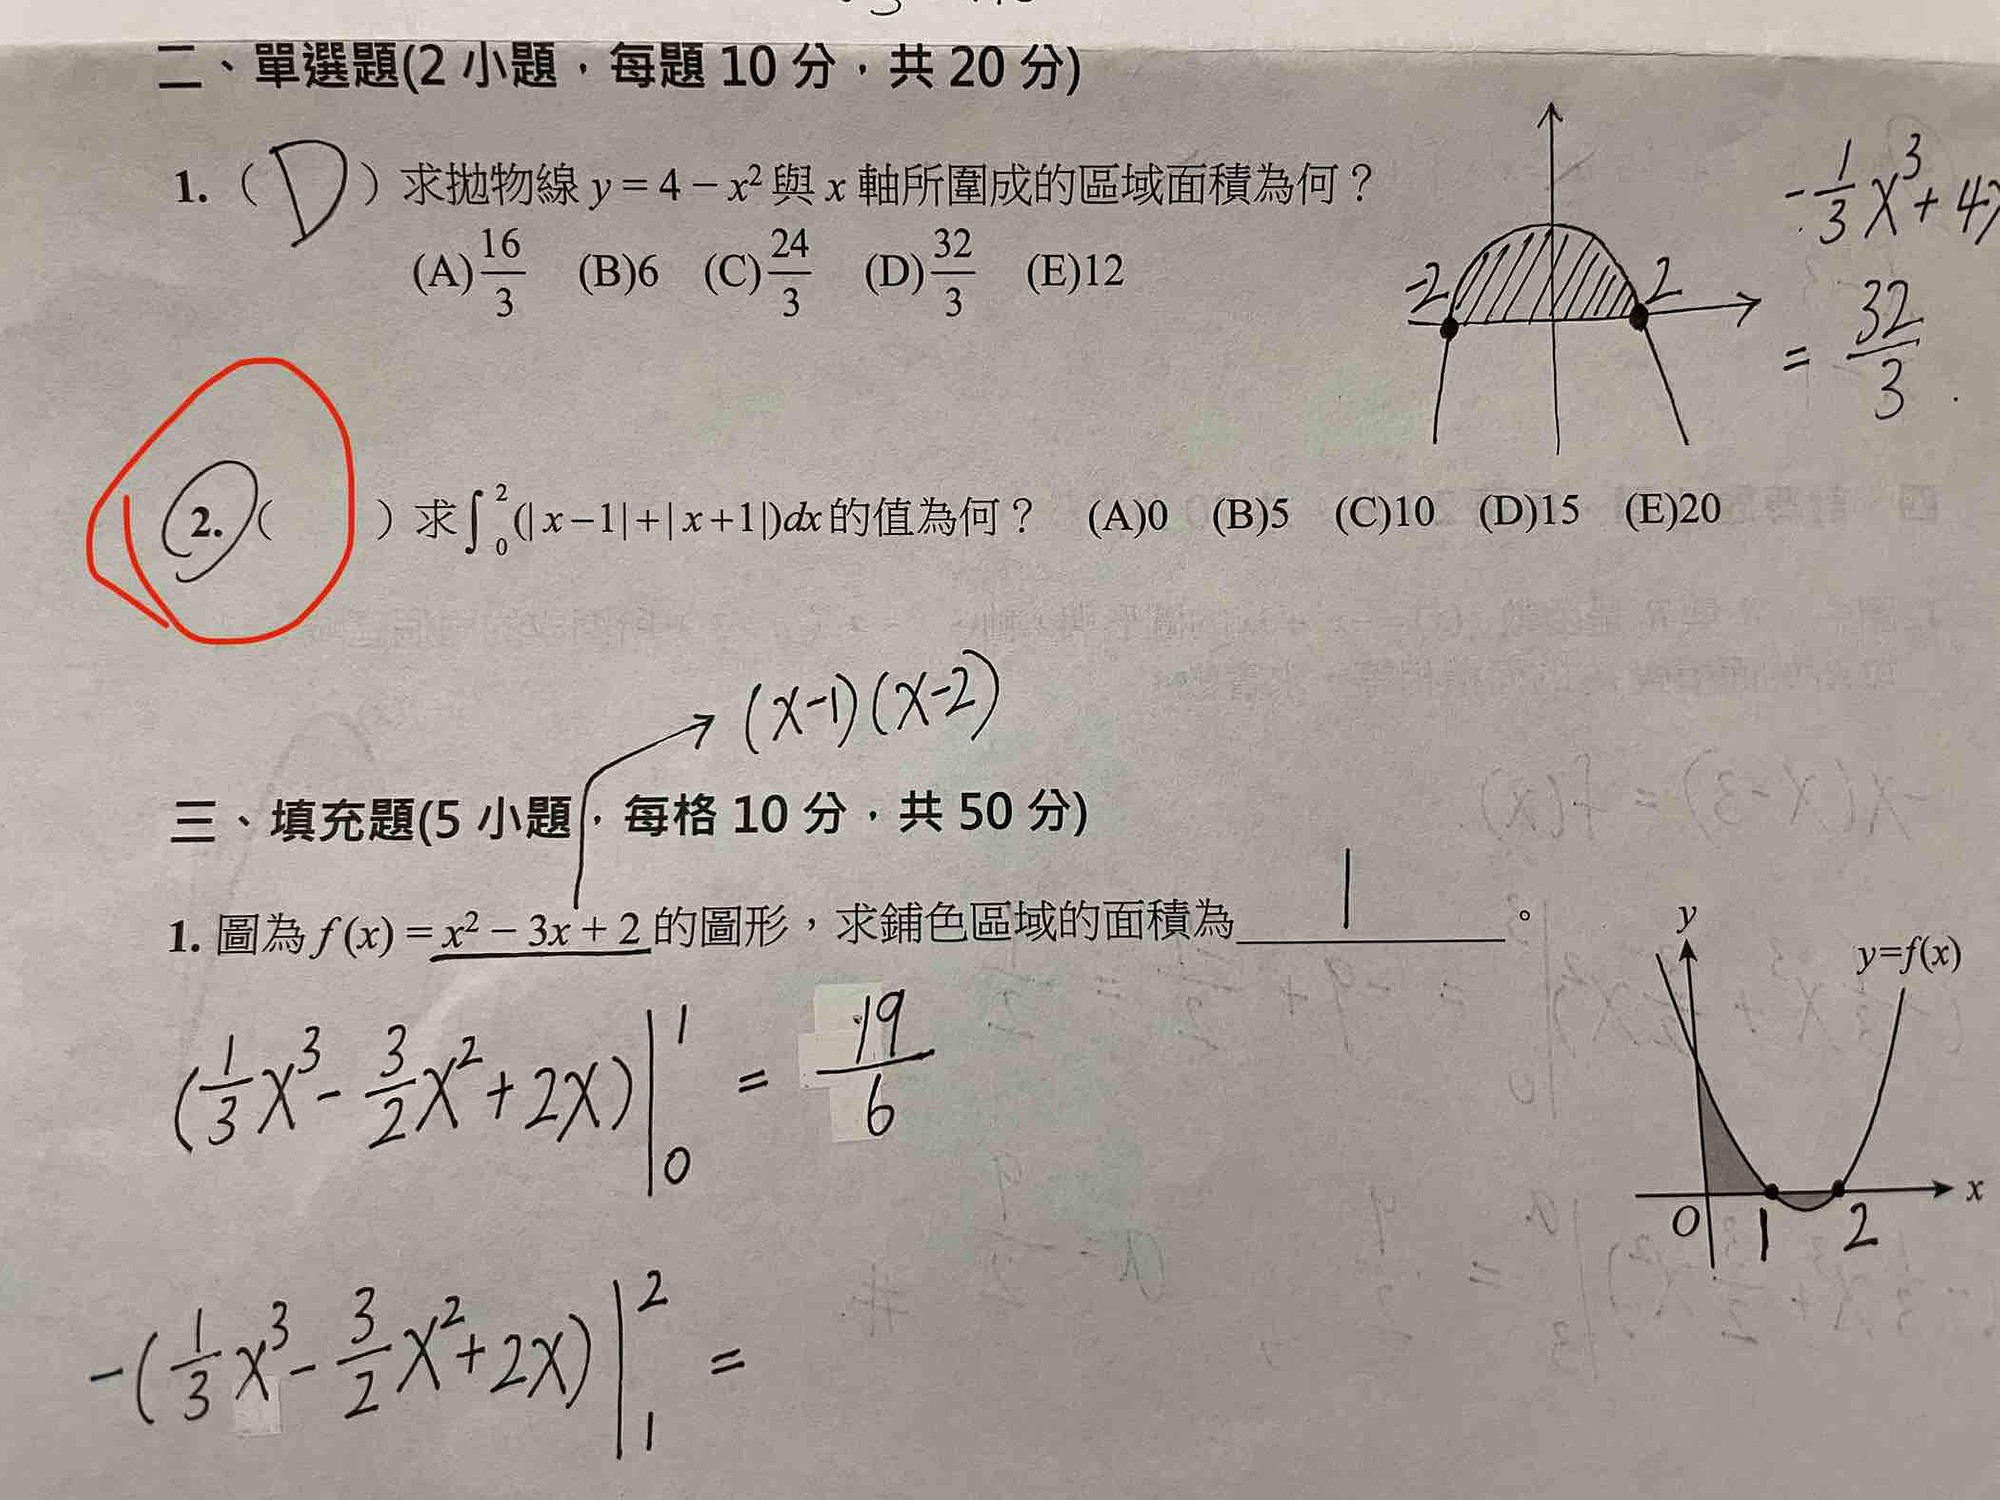 二、單選題(2 小題，每題 10 分，共 20 分)
1. ( D ) 求拋物線 y = 4 − x² 與 x 軸所圍成的區域面積為何？
(A)16/3 (B)6 (C)24/3 (D)32/3 (E)12
-2 2
-1/3 x³ + 4x
= 32/3
2. ( ) 求∫₀²(|x−1|+|x+1|)dx的值為何？ (A)0 (B)5 (C)10 (D)15 (E)20
(x-1)(x-2)
三、填充題(5 小題，每格 10 分，共 50 分)
1. 圖為 f(x) = x² − 3x + 2 的圖形，求鋪色區域的面積為 1 。
y
y=f(x)
x
O 1 2
(1/3 x³ - 3/2 x² + 2x)|₀¹ = 19/6
-(1/3 x³ - 3/2 x² + 2x)|₁² =